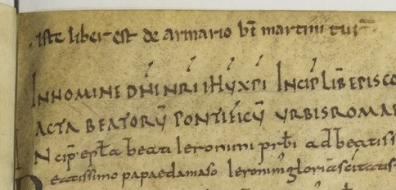 iste liber est de armario bi martini tur
IN NOMINE DNI NRI IHU XPI INCIP LIBER EPISCO
ACTA BEATORŪ PONTIFICŪ URBIS ROMAE
Incip epła beati Ieronimi prbi ad beatiss
Beatissimo papae damaso Ieronimus gloria scitatis